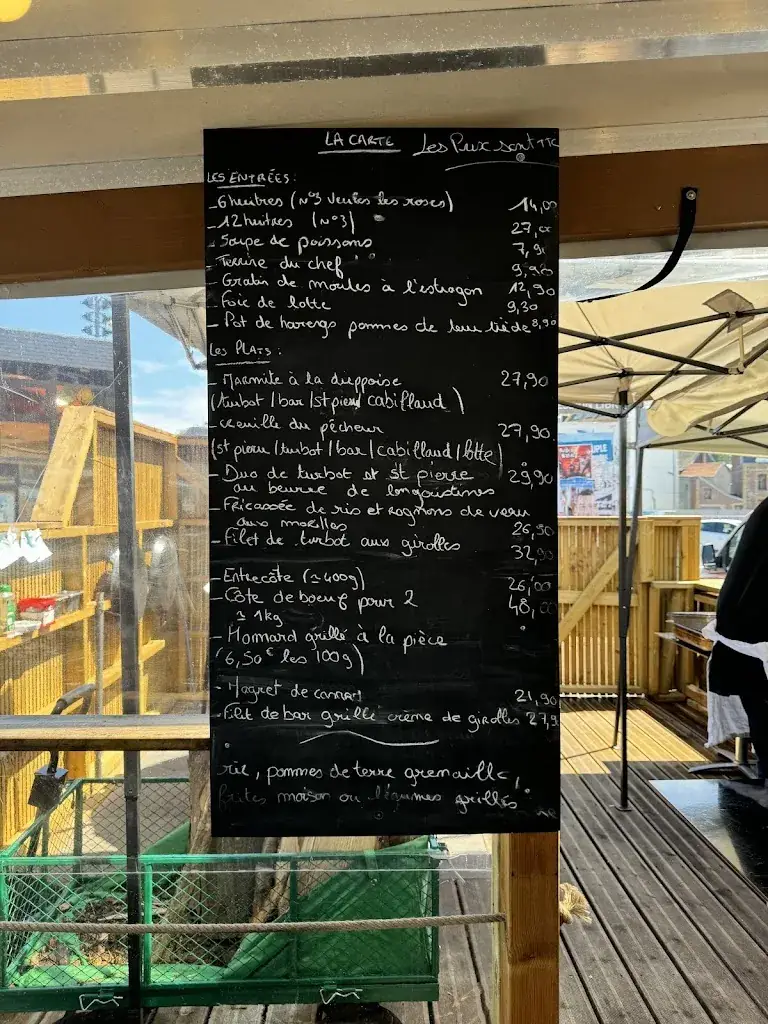 LA CARTE Les Prix sont TTC
LES ENTRÉES :
- 6 huitres (N°3 Veules les roses) 14,00
- 12 huitres (N°3) 27,00
- Soupe de poissons 7,90
- Terrine du chef 9,90
- Gratin de moules à l'estragon 12,90
- Foie de lotte 9,30
- Pot de harengs pommes de terre tiède 8,90
Les PLATS :
- Marmite à la dieppoise 27,90
(turbot / bar / st pierre / cabillaud)
- Grenille du pécheur 27,90
(st pierre / turbot / bar / cabillaud / lotte)
- Duo de turbot et st pierre 29,90
au beurre de langoustines
- Fricassée de ris et rognons de veau
aux morilles 26,50
- Filet de turbot aux girolles 32,90
- Entrecôte (≃ 400g) 26,00
- Côte de boeuf pour 2 48,00
≃ 1kg
- Homard grillé à la pièce
(6,50€ les 100g)
- Magret de canard 21,90
- Filet de bar grillé crème de girolles 27,9
riz, pommes de terre grenaille,
frites maison ou légumes grillés